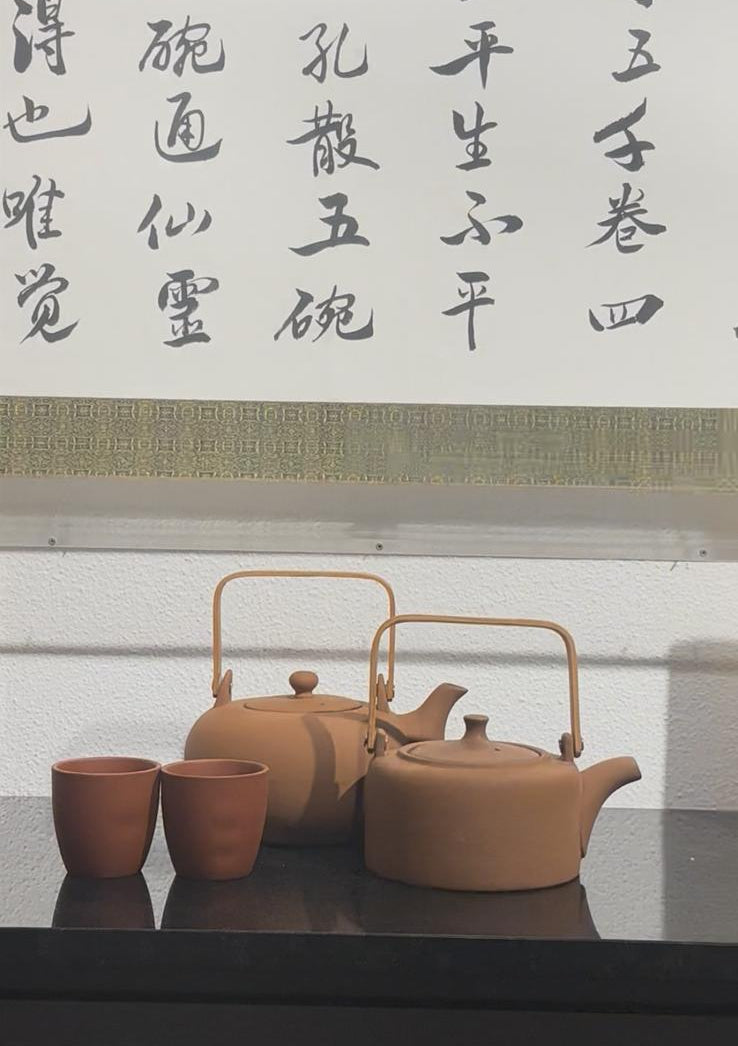 五千卷四
平生不平
孔散五碗
碗通仙灵
得也唯觉